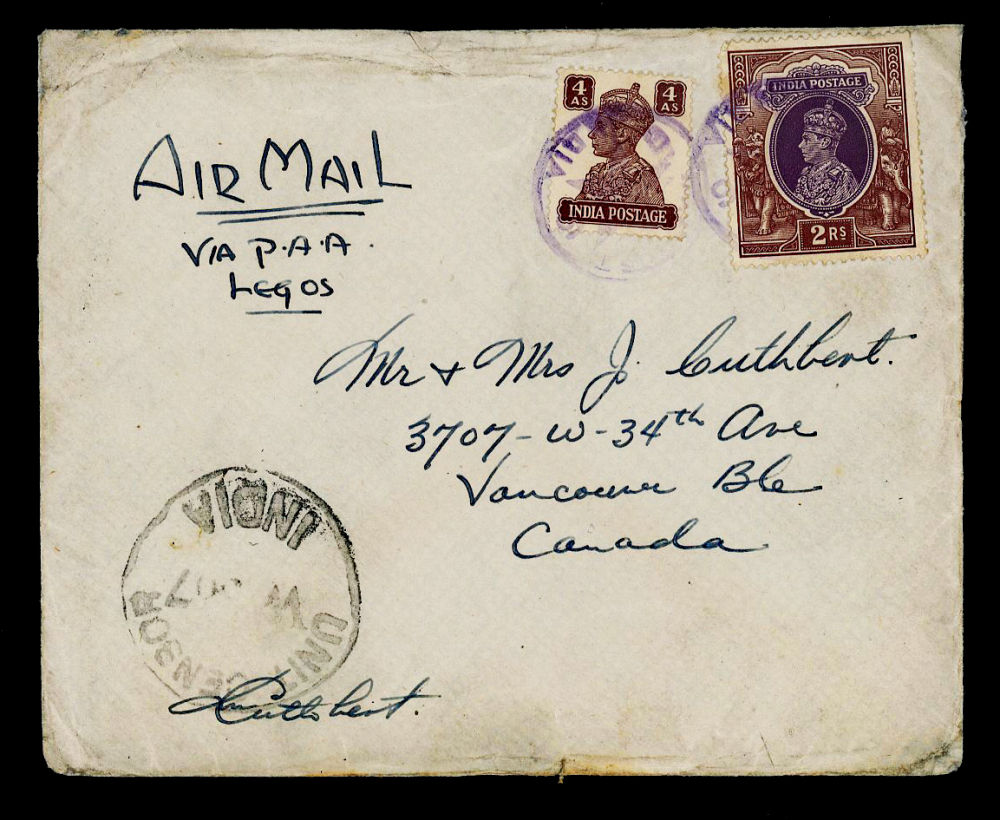 AIR MAIL
VIA P.A.A.
LEGOS
4 AS 4 AS
INDIA POSTAGE
INDIA POSTAGE
2 RS
Mr + Mrs J. Cuthbert.
3707-W-34th Ave
Vancouver Ble
Canada
INDIA
UNIT CENSOR
Cuthbert.